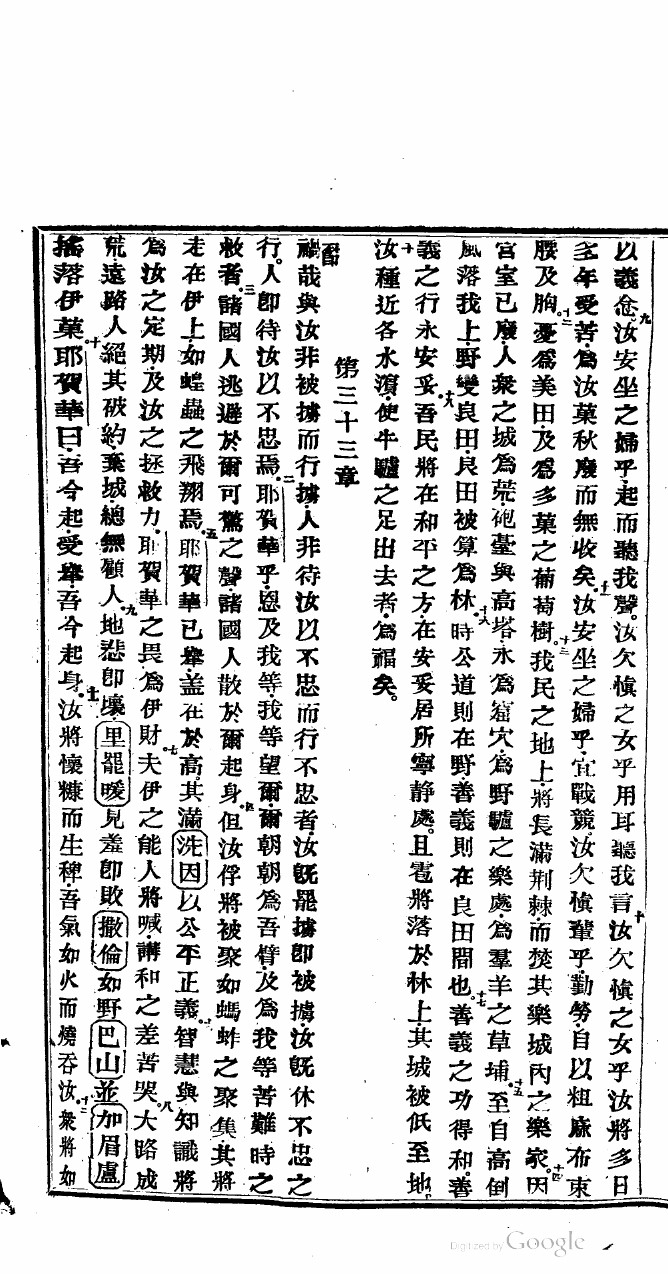 以義念九汝安坐之婦乎起而聽我聲汝欠愼之女乎用耳聽我言十汝欠愼之女乎汝將多日
多年受苦爲汝菓秋廢而無收矣十一汝安坐之婦乎宜戰競汝欠愼輩乎勤勞自以粗麻布束
腰及胸十二憂爲美田及爲多菓之葡萄樹十三我民之地上將長滿荆棘而焚其樂城內之樂家十四因
宮室已廢人衆之城爲荒砲臺與高塔永爲窟穴爲野驢之樂處爲羣羊之草埔十五至自高倒
風落我上野變良田良田被算爲林十六時公道則在野善義則在良田間也十七善義之功得和善
義之行永安妥十八吾民將在和平之方在安妥居所寧静處且雹將落於林上其城被低至地
汝種近各水濱使牛驢之足出去者爲福矣
第三十三章
禍哉與汝非被擄而行擄人非待汝以不忠而行不忠者汝旣罷擄卽被擄汝旣休不忠之
行人卽待汝以不忠焉二耶賀華乎恩及我等我等望爾爾朝朝爲吾臂及爲我等苦難時之
救者三諸國人逃遯於爾可驚之聲諸國人散於爾起身四但汝俘將被聚如螞蚱之聚集其將
走在伊上如蝗蟲之飛翔焉五耶賀華已舉盖在於高其滿洗因以公平正義六智慧與知識將
爲汝之定期及汝之拯救力耶賀華之畏爲伊財七夫伊之能人將喊講和之差苦哭八大路成
荒遠路人絕其破約棄城總無顧人九地愁卽壞里罷暖見羞卽敗撒倫如野巴山並加眉盧
搖落伊菓十耶賀華曰吾今起受舉吾今起身十一汝將懷糠而生稗吾氣如火而燒吞汝十二衆將如
Digitized by Google